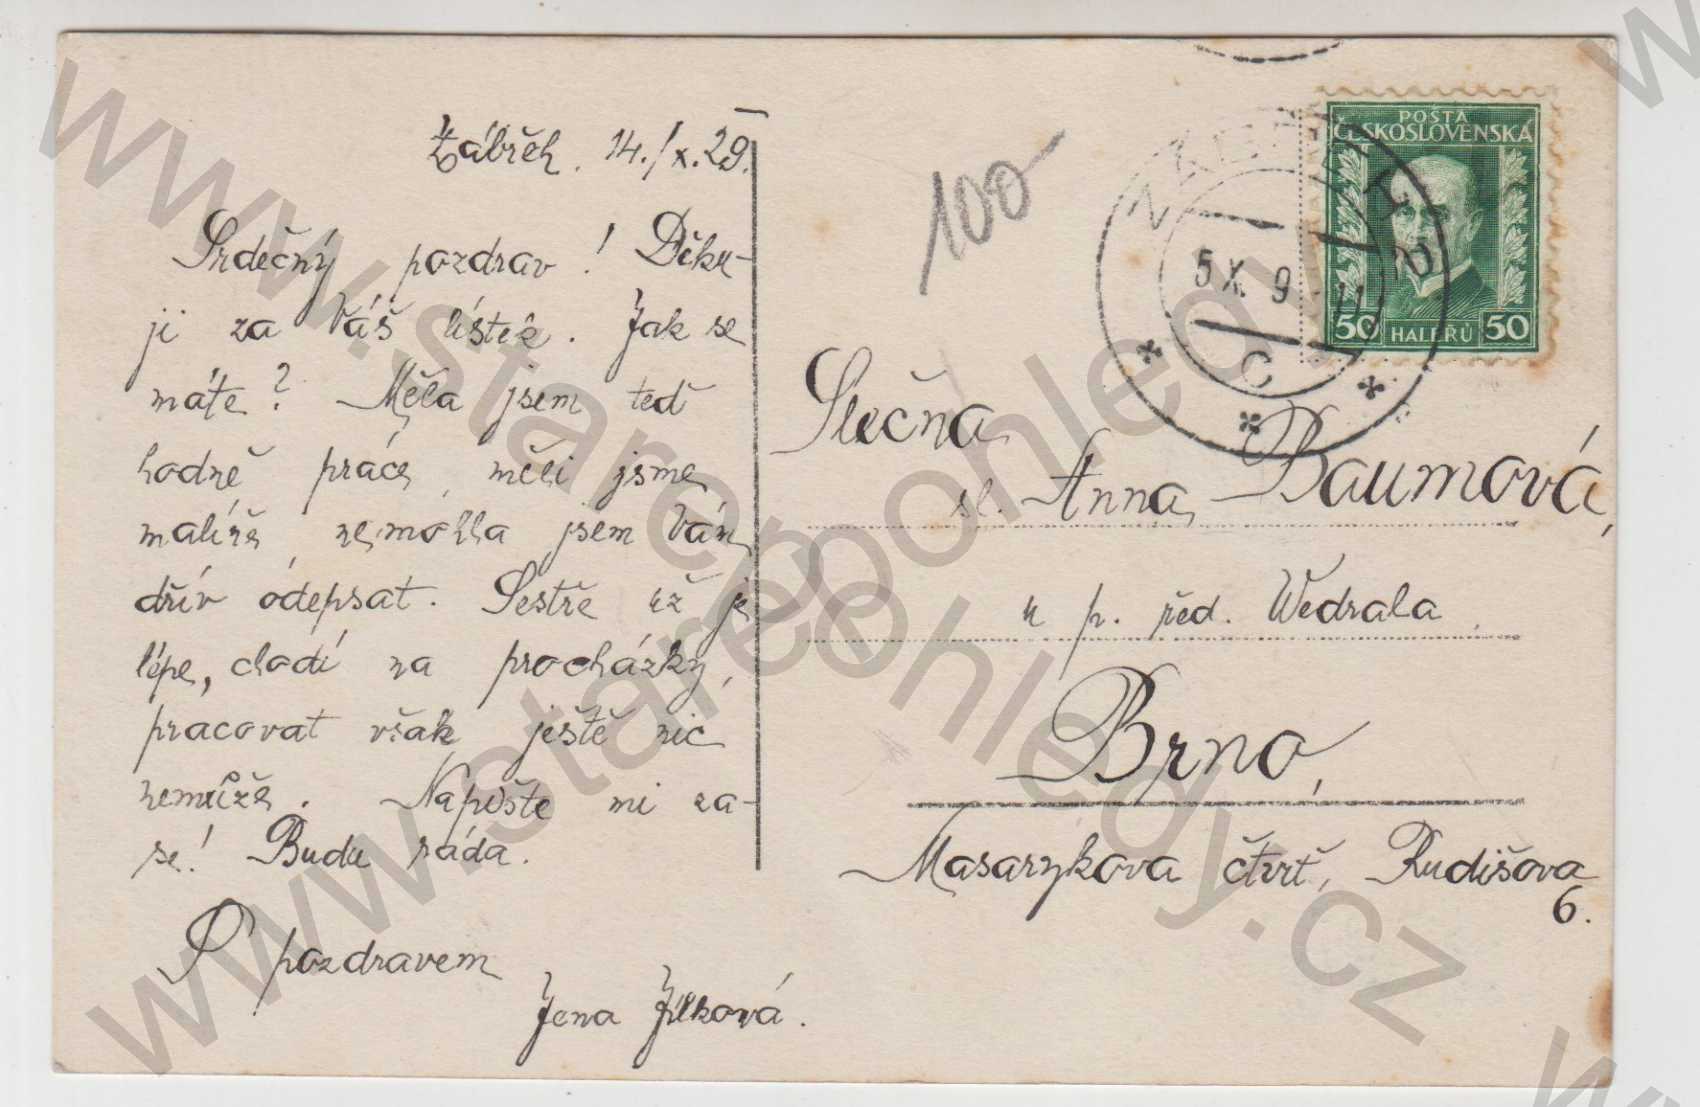 Zábřeh. 14./x.29.
Srdečný pozdrav! Děku-
ji za Váš lístek. Jak se
máte? Měla jsem teď
hodně práce, měli jsme
malíře, nemohla jsem Vám
dřív odepsat. Sestře už je
lépe, chodí na procházky,
pracovat však ještě nic
nemůže. Napište mi za-
se! Budu ráda.
S pozdravem
Jena Jílková.
100
POŠTA
ČESKOSLOVENSKÁ
50 HALÉŘŮ 50
5 X. 9
C
Slečna
sl. Anna Baumová,
u p. řed. Wedrala,
Brno,
Masarykova čtvrť, Rudišova
6.
www.starepohledy.cz
www.starepohledy.cz